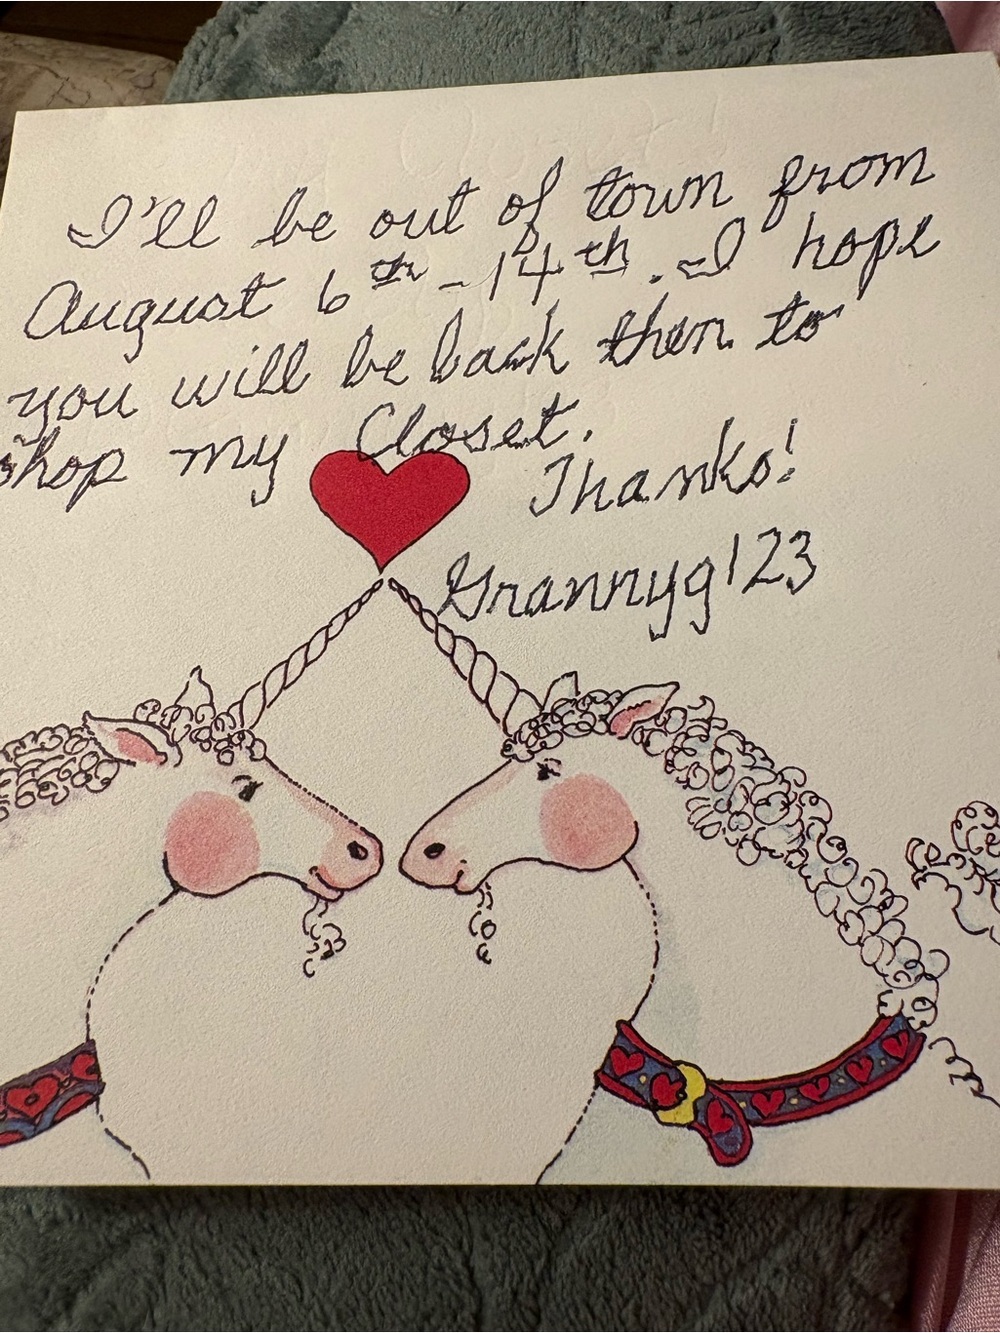 I'll be out of town from
August 6th - 14th. I hope
you will be back then to
shop my Closet.
Thanks!
Grannyg123